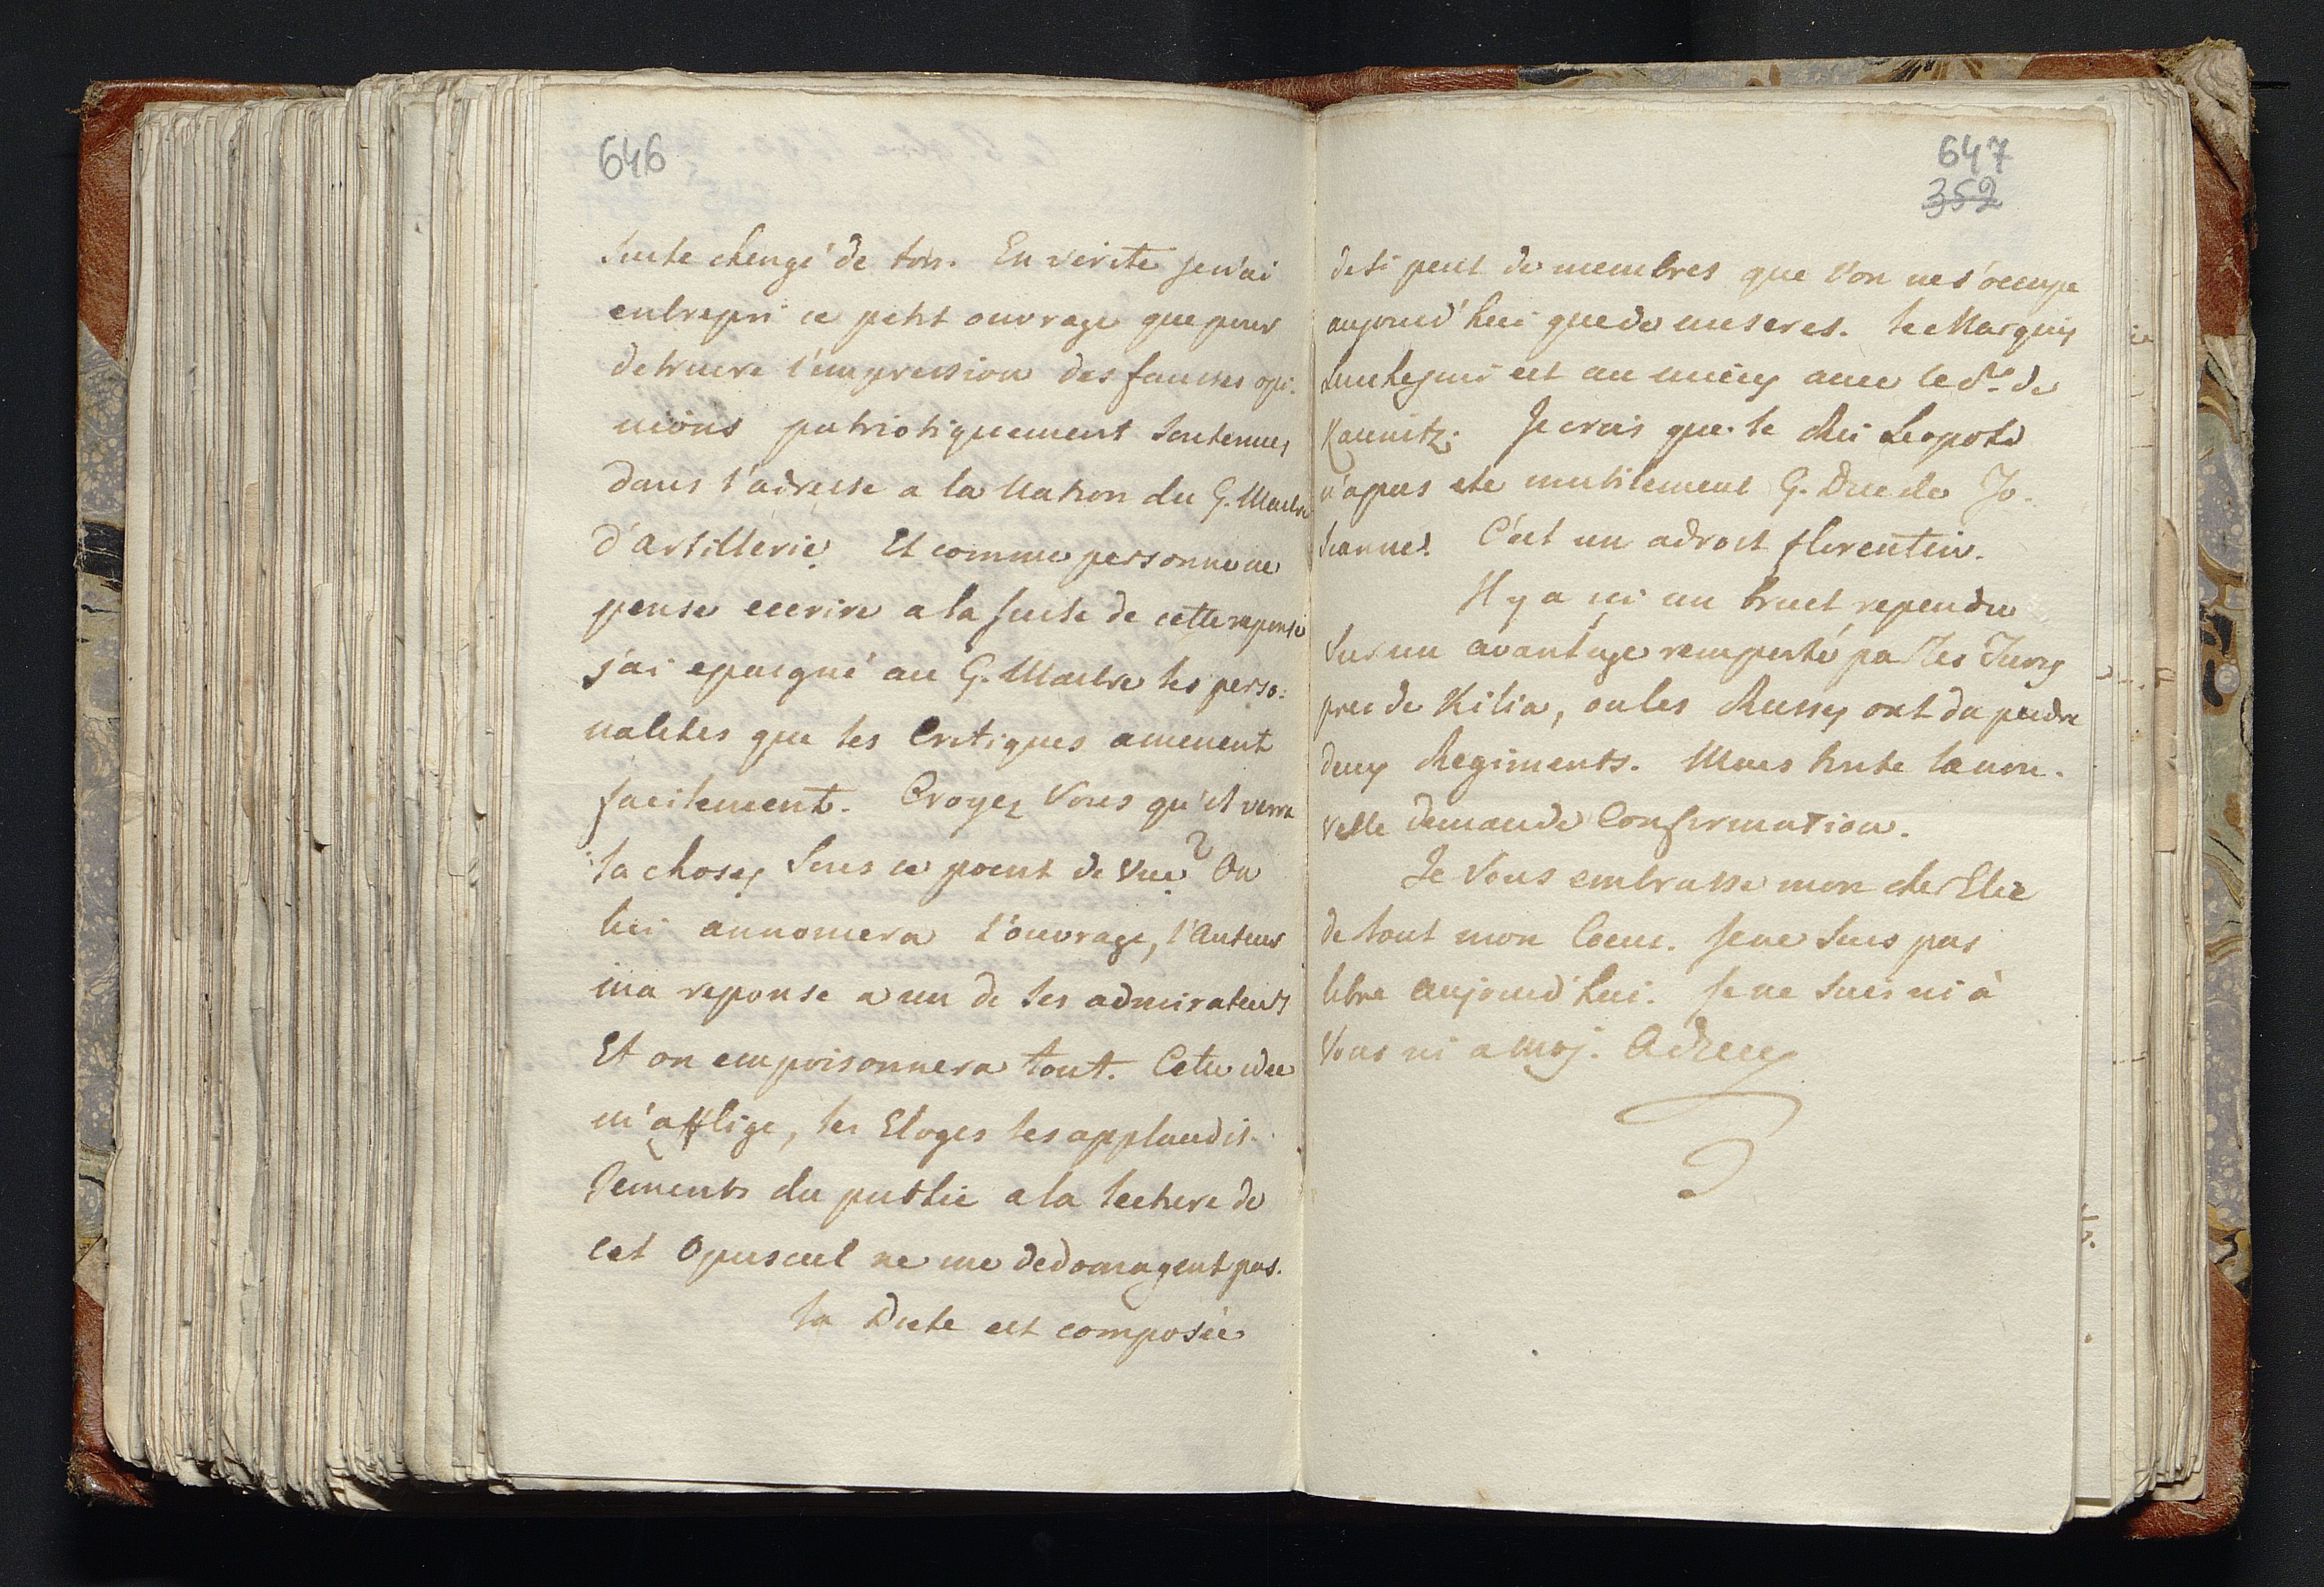 646
Suite changé de ton. En verite je n'ai
entrepri ce petit ouvrage que pour
detruire l'impression des fausses opi-
nions patriotiquement soutenues
dans l'adresse a la Nation du G. Maitre
d'artillerie. Et comme personne ne
pense ecrire a la suite de cette reponse
j'ai epargné au G. Maitre les perso:
nalites que les Critiques amenent
facilement. Croyez Vous qu'il verra
la chose, sous ce point de vue? On
lui annoncera l'ouvrage, l'Auteur
ma reponse a un de ses admirateurs
Et on empoisonnera tout. Cette idee
m'afflige, les Eloges les applaudis-
sements du public a la lecture de
cet Opuscul ne me dedomagent pas.
la Diete est composée
647
352
de si peut de membres que l'on ne s'occupe
aujourd'hui que de miseres. le Marquis
Luchesini est au mieux avec le de
Kaunitz. Je crois que le Roi Leopold
n'a pas ete inutilement G. Duc de To-
scanne. C'est un adroit florentin.
Il y a ici un bruit rependu
sur un avantage remporté par les Turcs
pres de Kilia, ou les Russes ont du perdre
deux Regiments. Mais toute la nou-
velle demande Confirmation.
Je Vous embrasse mon cher Elie
de tout mon Coeur. Je ne suis pas
libre aujourd'hui. Je ne suis ni à
Vous ni a moj. Adieu